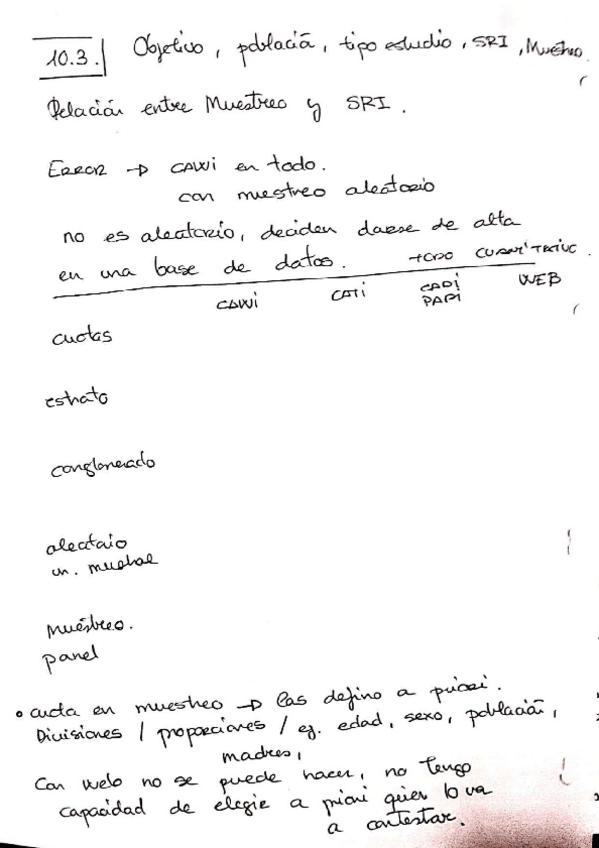 10.3. Objetivo, población, tipo estudio, SRI, Muestreo.
Relación entre Muestreo y SRI.
Error → CAWI en todo.
con muestreo aleatorio
no es aleatorio, deciden darse de alta
en una base de datos. TODO CUANTITATIVO.
CAWI CATI CAPI PAPI WEB
cuotas
estrato
conglomerado
aleatorio
muestreo.
panel
• cuota en muestreo → las defino a priori.
Divisiones / proporciones / eg. edad, sexo, población,
madres,
Con web no se puede hacer, no tengo
capacidad de elegir a priori quien lo va
a contestar.